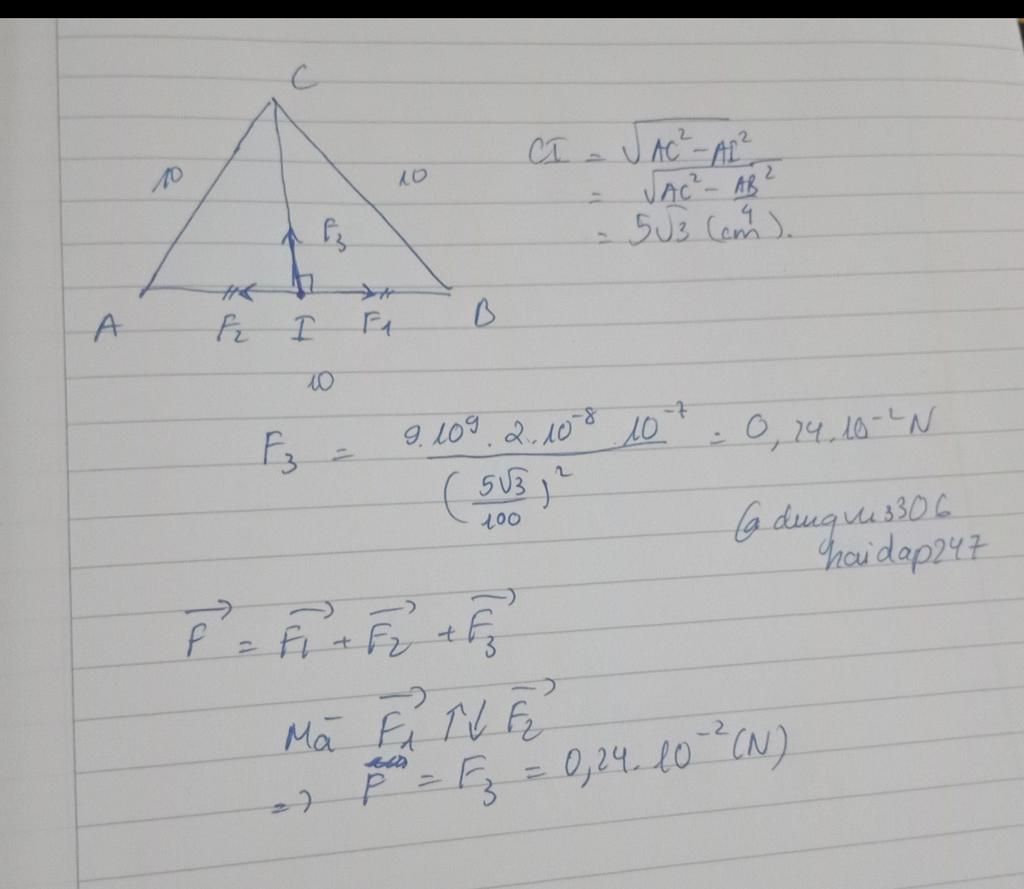 C
10
10
F₃
A
F₂
I
F₁
B
10
CI = √(AC² - AI²)
= √(AC² - AB²/4)
= 5√3 (cm).
F₃ = (9.10⁹ . 2.10⁻⁸ . 10⁻⁷)/((5√3/100)²) = 0,24.10⁻² N
haidap247
F⃗ = F₁⃗ + F₂⃗ + F₃⃗
Mà F₁⃗ ↑↓ F₂⃗
=> F = F₃ = 0,24.10⁻² (N)